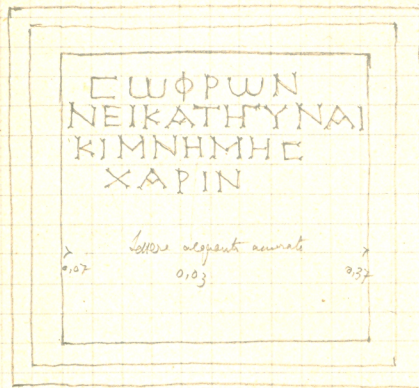 ϹωΦΡωΝ
ΝΕΙΚΑΤΗΓΥΝΑΙ
ΚΙΜΝΗΜΗϹ
ΧΑΡΙΝ
Lettere alquanto accurate
0,07 0,03 0,37